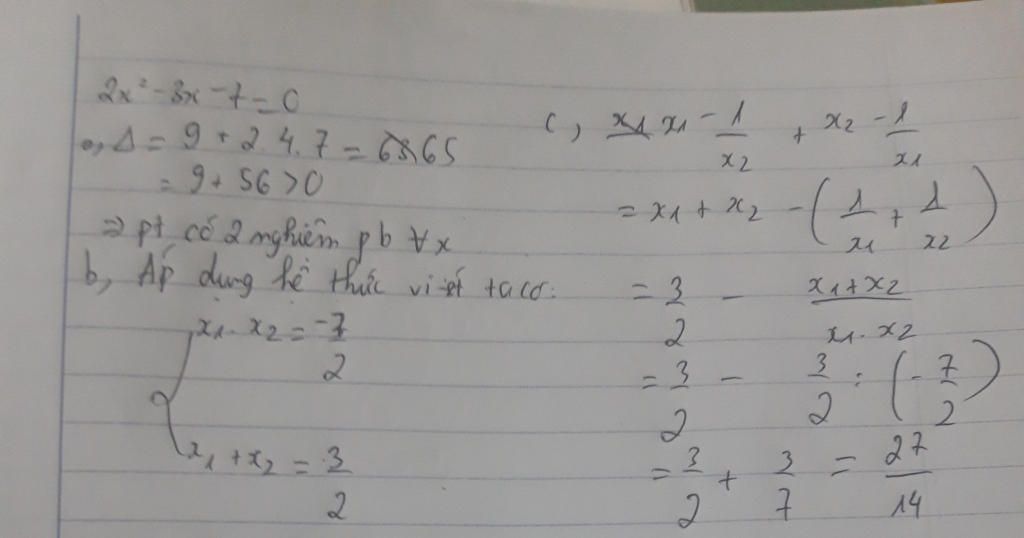 2x² - 3x - 7 = 0
a, Δ = 9 + 2.4.7 = 65
= 9 + 56 > 0
⇒ pt có 2 nghiệm pb ∀x
b, Áp dụng hệ thức vi-ét ta có:
x₁ . x₂ = -7/2
x₁ + x₂ = 3/2
c, x₁ - 1/x₂ + x₂ - 1/x₁
= x₁ + x₂ - (1/x₁ + 1/x₂)
= 3/2 - (x₁+x₂)/(x₁.x₂)
= 3/2 - 3/2 : (-7/2)
= 3/2 + 3/7 = 27/14